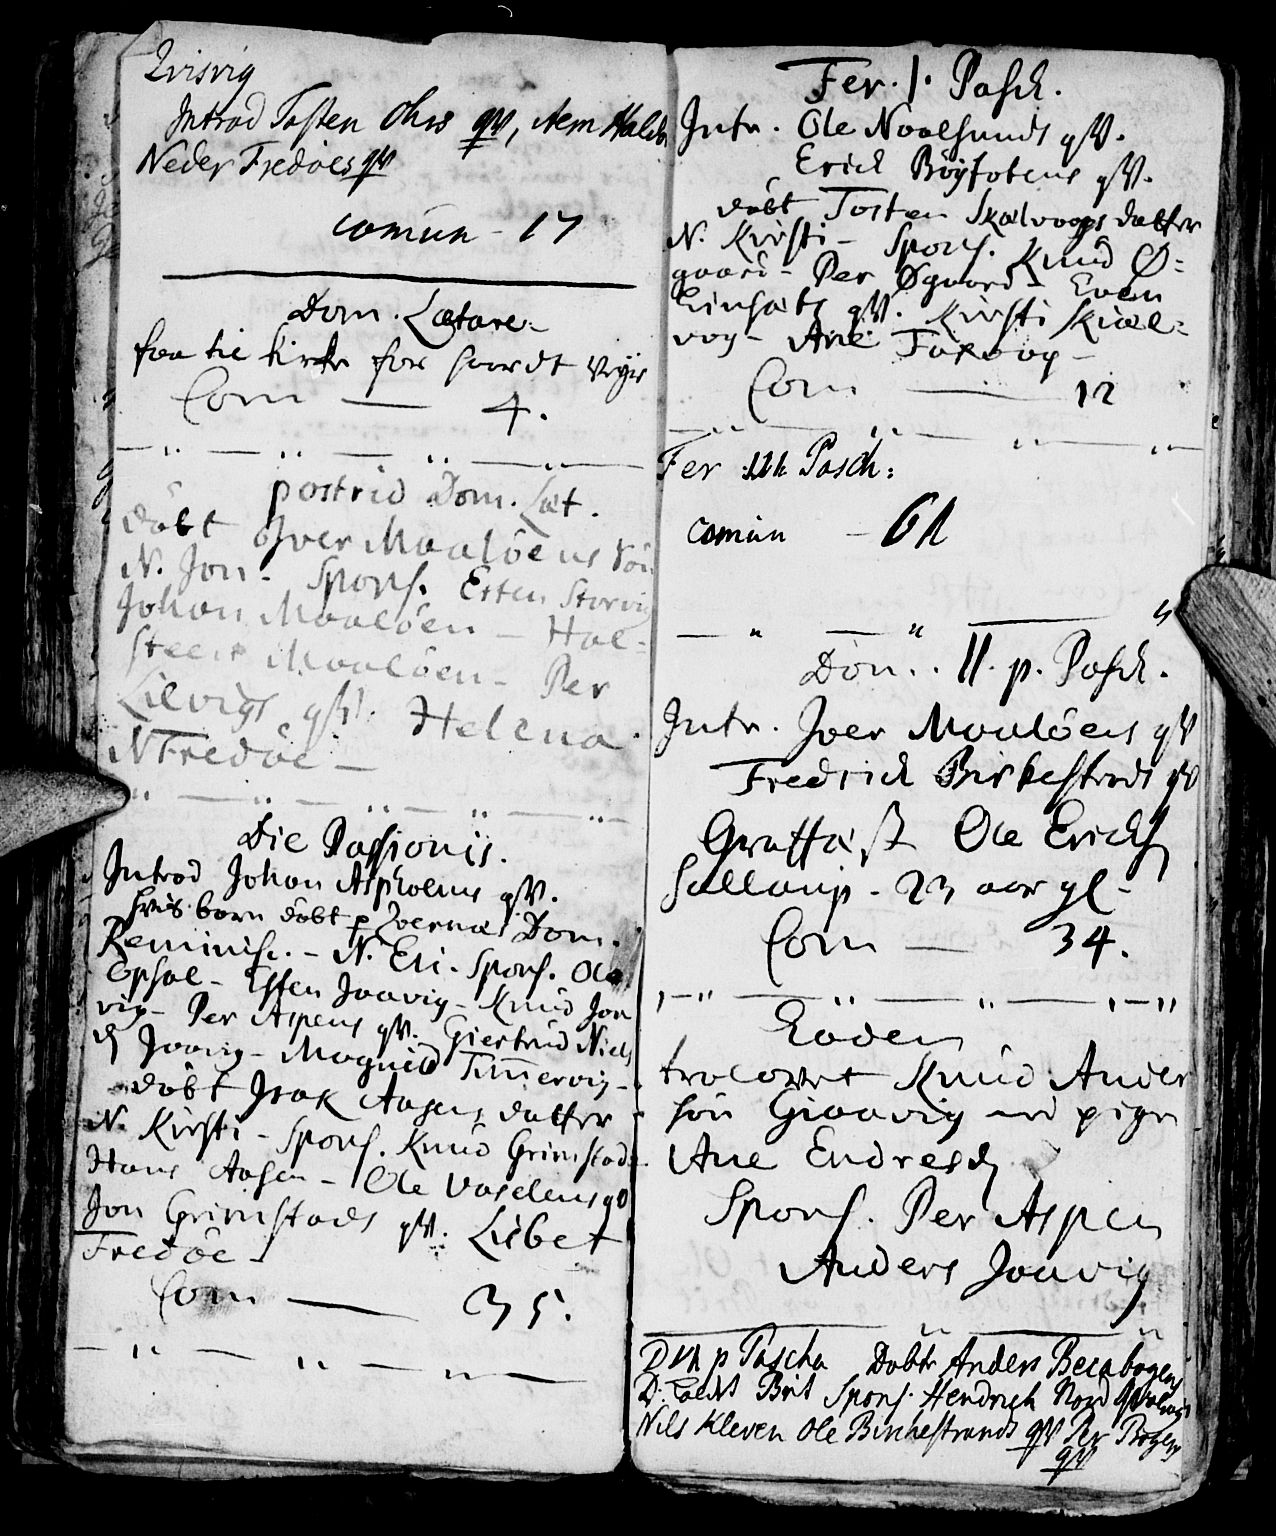 Qvisvig
Introd Tosten Ohrs qV, item Halds
Neder Fredøes qV
comun - 17
Dom. Lætare -
faa til kirke for haardt Veyir
Com — 4.
postrid Dom. Læt.
døbt Iver Maaløens Søn
N. Jon - Spons. Esten Storvig
Johan Maaløen - Hal-
steen Maaløen - Per
Lilvigs qV. Helena
NFredøe -
Die Passionis.
Introd Johan Aspholms qV.
hvis barn døbt p Qvernæs Dom.
Reminisc. - N. Eli - Spons. Ole
Opsal - Esten Joavig - Knud Joa
vig - Per Aspens qV. Giertrud Niels
d Joavig - Magnild Timmervig -
døbt Isak Aasens datter
N. Kirsti - Spons. Knud Grimstad
Hans Aasen - Ole Vaadens qV
Jon Grimstads qV. Lisbet
Fredøe -
Com — 35.
Fer. 1. Pasch.
Intr. Ole Noalsunds qV.
Erich Bøyfotens qV.
døbt Tosten Skalvoogs datter
N. Kirsti - Spons. Knud Ø-
gaard - Per Øgaard - Even
Einsæts qV. Kirsti Skal-
vog - Ane Taxvog -
Com — 12
Fer 2n Pasch:
comun - 61
Dom. II. p. Pasch.
Intr. Iver Maaløens qV
Fredrich Birkestrads qV
Ole Erichs
23 aar gl -
Com — 34.
Eodem
trolovet Knud Ander
søn Gioavig med pigen
Ane Endresd
Spons. Per Aspen
Anders Joavig
p Pascha Døbt Anders
Brit Spons. Hendrich Nord
Nils Kleven Ole Birchestrands qV Per
qV